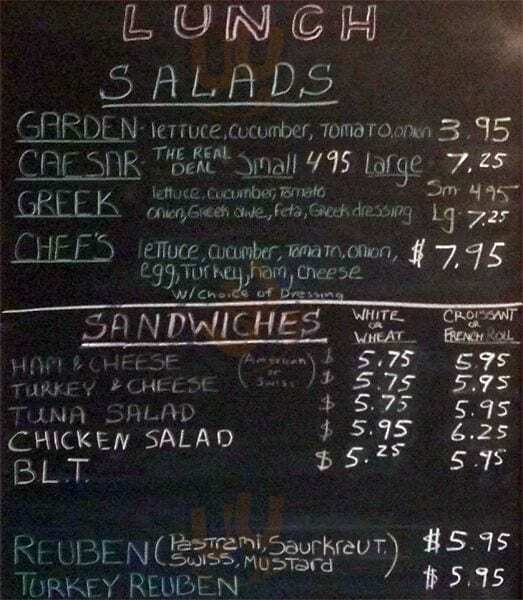 LUNCH
SALADS
GARDEN- lettuce, cucumber, tomato, onion 3.95
CAESAR- THE REAL DEAL Small 4.95 Large 7.25
GREEK lettuce, cucumber, tomato Sm 4.95
onion, Greek olive, feta, Greek dressing Lg. 7.25
CHEF'S lettuce, cucumber, tomato, onion, $7.95
egg, turkey, ham, cheese
W/Choice of Dressing
SANDWICHES WHITE OR WHEAT CROISSANT OR FRENCH ROLL
HAM & CHEESE (American or Swiss) $ 5.75 5.95
TURKEY & CHEESE 5.75 5.95
TUNA SALAD $ 5.75 5.95
CHICKEN SALAD $ 5.95 6.25
B.L.T. $ 5.25 5.95
REUBEN (Pastrami, Saurkraut, $5.95
Swiss, Mustard)
TURKEY REUBEN $5.95